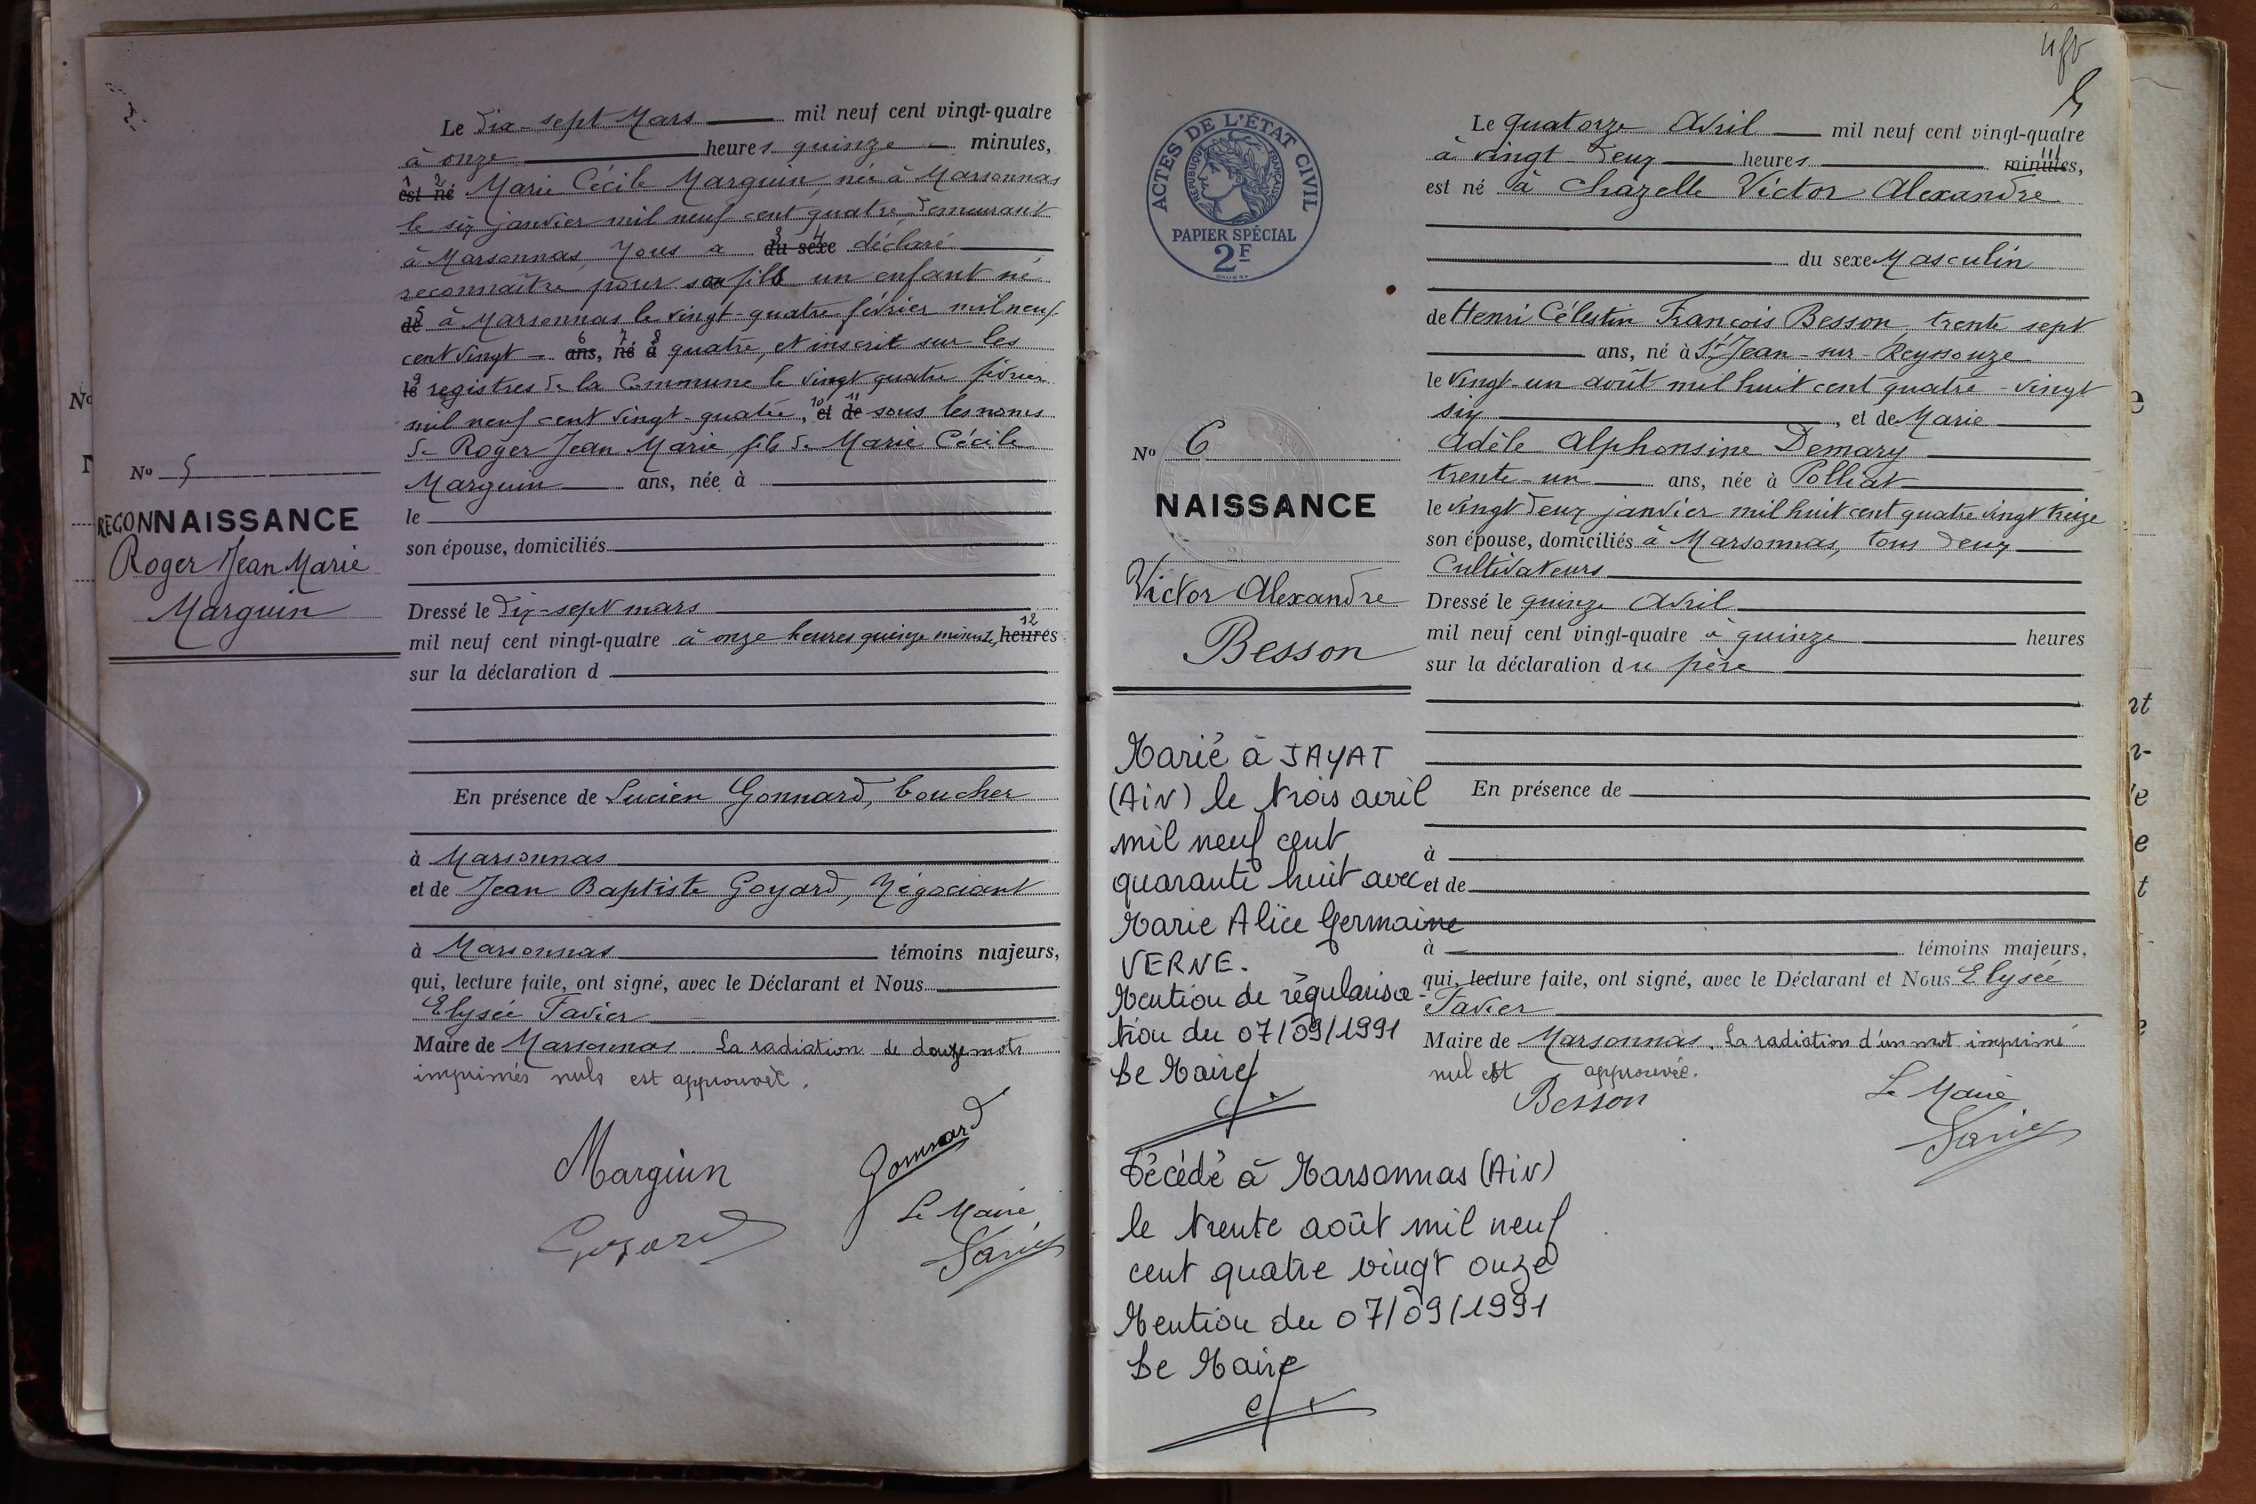 Le dix-sept Mars mil neuf cent vingt-quatre
à onze heures quinze minutes,
1 2
est né Marie Cécile Marguin, née à Marsonnas
le six janvier mil neuf cent quatre, demeurant
3 4
à Marsonnas, Nous a du sexe déclaré
reconnaître pour son fils un enfant né
5
de à Marsonnas le vingt-quatre février mil neuf
6 7 8
cent vingt- ans, né à quatre, et inscrit sur les
9
le registres de la Commune le vingt quatre février
10 11
mil neuf cent vingt-quatre, et de sous les noms
de Roger Jean Marie fils de Marie Cécile
Marguin ans, née à
le
son épouse, domiciliés
Dressé le dix-sept mars
12
mil neuf cent vingt-quatre à onze heures quinze minutes, heures
sur la déclaration d
En présence de Lucien Gonnard, boucher
à Marsonnas
et de Jean Baptiste Goyard, Négociant
à Marsonnas témoins majeurs,
qui, lecture faite, ont signé, avec le Déclarant et Nous
Elysée Favier
Maire de Marsonnas. La radiation de douze mots
imprimés nuls est approuvée.
Marguin
Gonnard
Goyard
Le Maire,
Favier
No 5
RECONNAISSANCE
Roger Jean Marie
Marguin
ACTES DE L'ÉTAT CIVIL
RÉPUBLIQUE FRANÇAISE
PAPIER SPÉCIAL
2F
No 6
NAISSANCE
Victor Alexandre
Besson
Marié à JAYAT
(Ain) le trois avril
mil neuf cent
quarante huit avec
Marie Alice Germaine
VERNE.
Mention de régularisa-
tion du 07/09/1991
Le Maire
Décédé à Marsonnas (Ain)
le trente août mil neuf
cent quatre vingt onze
Mention du 07/09/1991
Le Maire
Le quatorze Avril mil neuf cent vingt-quatre
à vingt deux heures minutes,
est né à Chazelle Victor Alexandre
du sexe Masculin
de Henri Célestin François Besson, trente sept
ans, né à St Jean-sur-Reyssouze
le vingt-un août mil huit cent quatre-vingt
six, et de Marie
Adèle Alphonsine Demary
trente-un ans, née à Polliat
le vingt deux janvier mil huit cent quatre vingt treize
son épouse, domiciliés à Marsonnas, tous deux
Cultivateurs
Dressé le quinze Avril
mil neuf cent vingt-quatre à quinze heures
sur la déclaration du père
En présence de
à
et de
à témoins majeurs,
qui, lecture faite, ont signé, avec le Déclarant et Nous Elysée
Favier
Maire de Marsonnas. La radiation d'un mot imprimé
nul est approuvée.
Besson
Le Maire
Favier